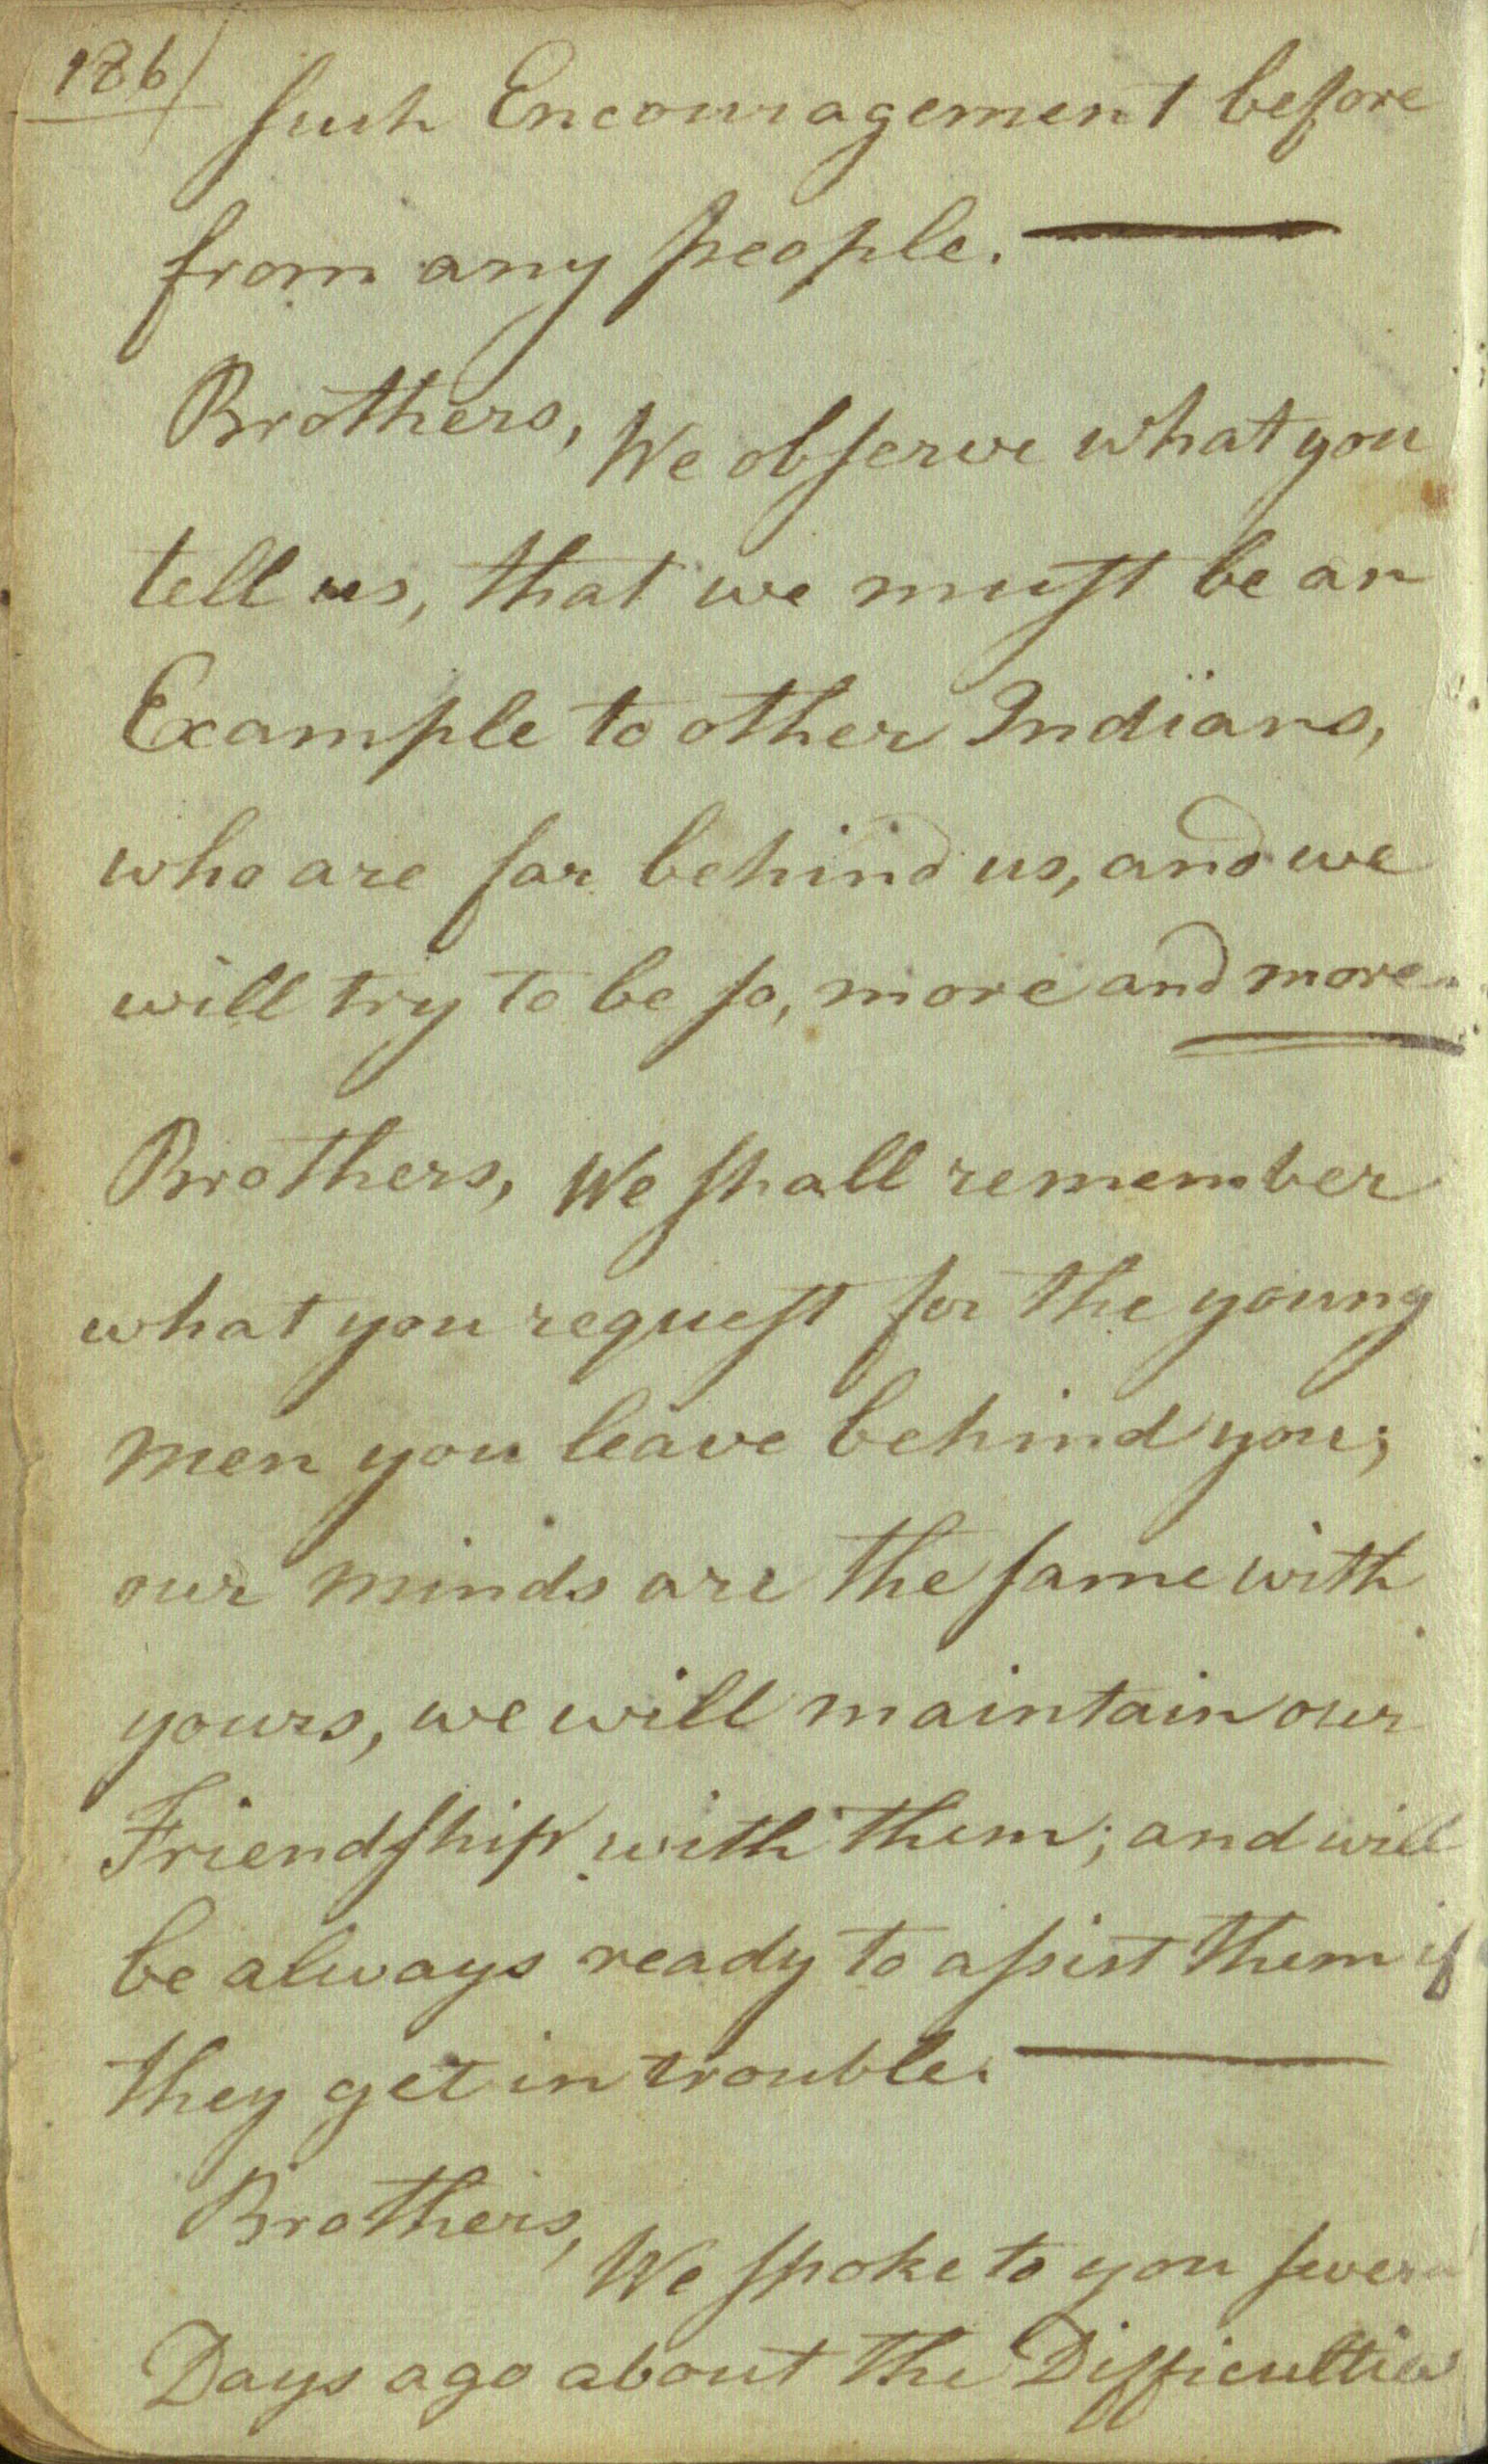 186
such Encouragement before
from any people. —
Brothers, We observe what you
tell us, that we must be an
Example to other Indians,
who are far behind us, and we
will try to be so, more and more
Brothers, We shall remember
what you request for the young
men you leave behind you;
our minds are the same with
yours, we will maintain our
Friendship with them; and will
be always ready to assist them if
they get in trouble. —
Brothers, We spoke to you
Days ago about the Difficulties